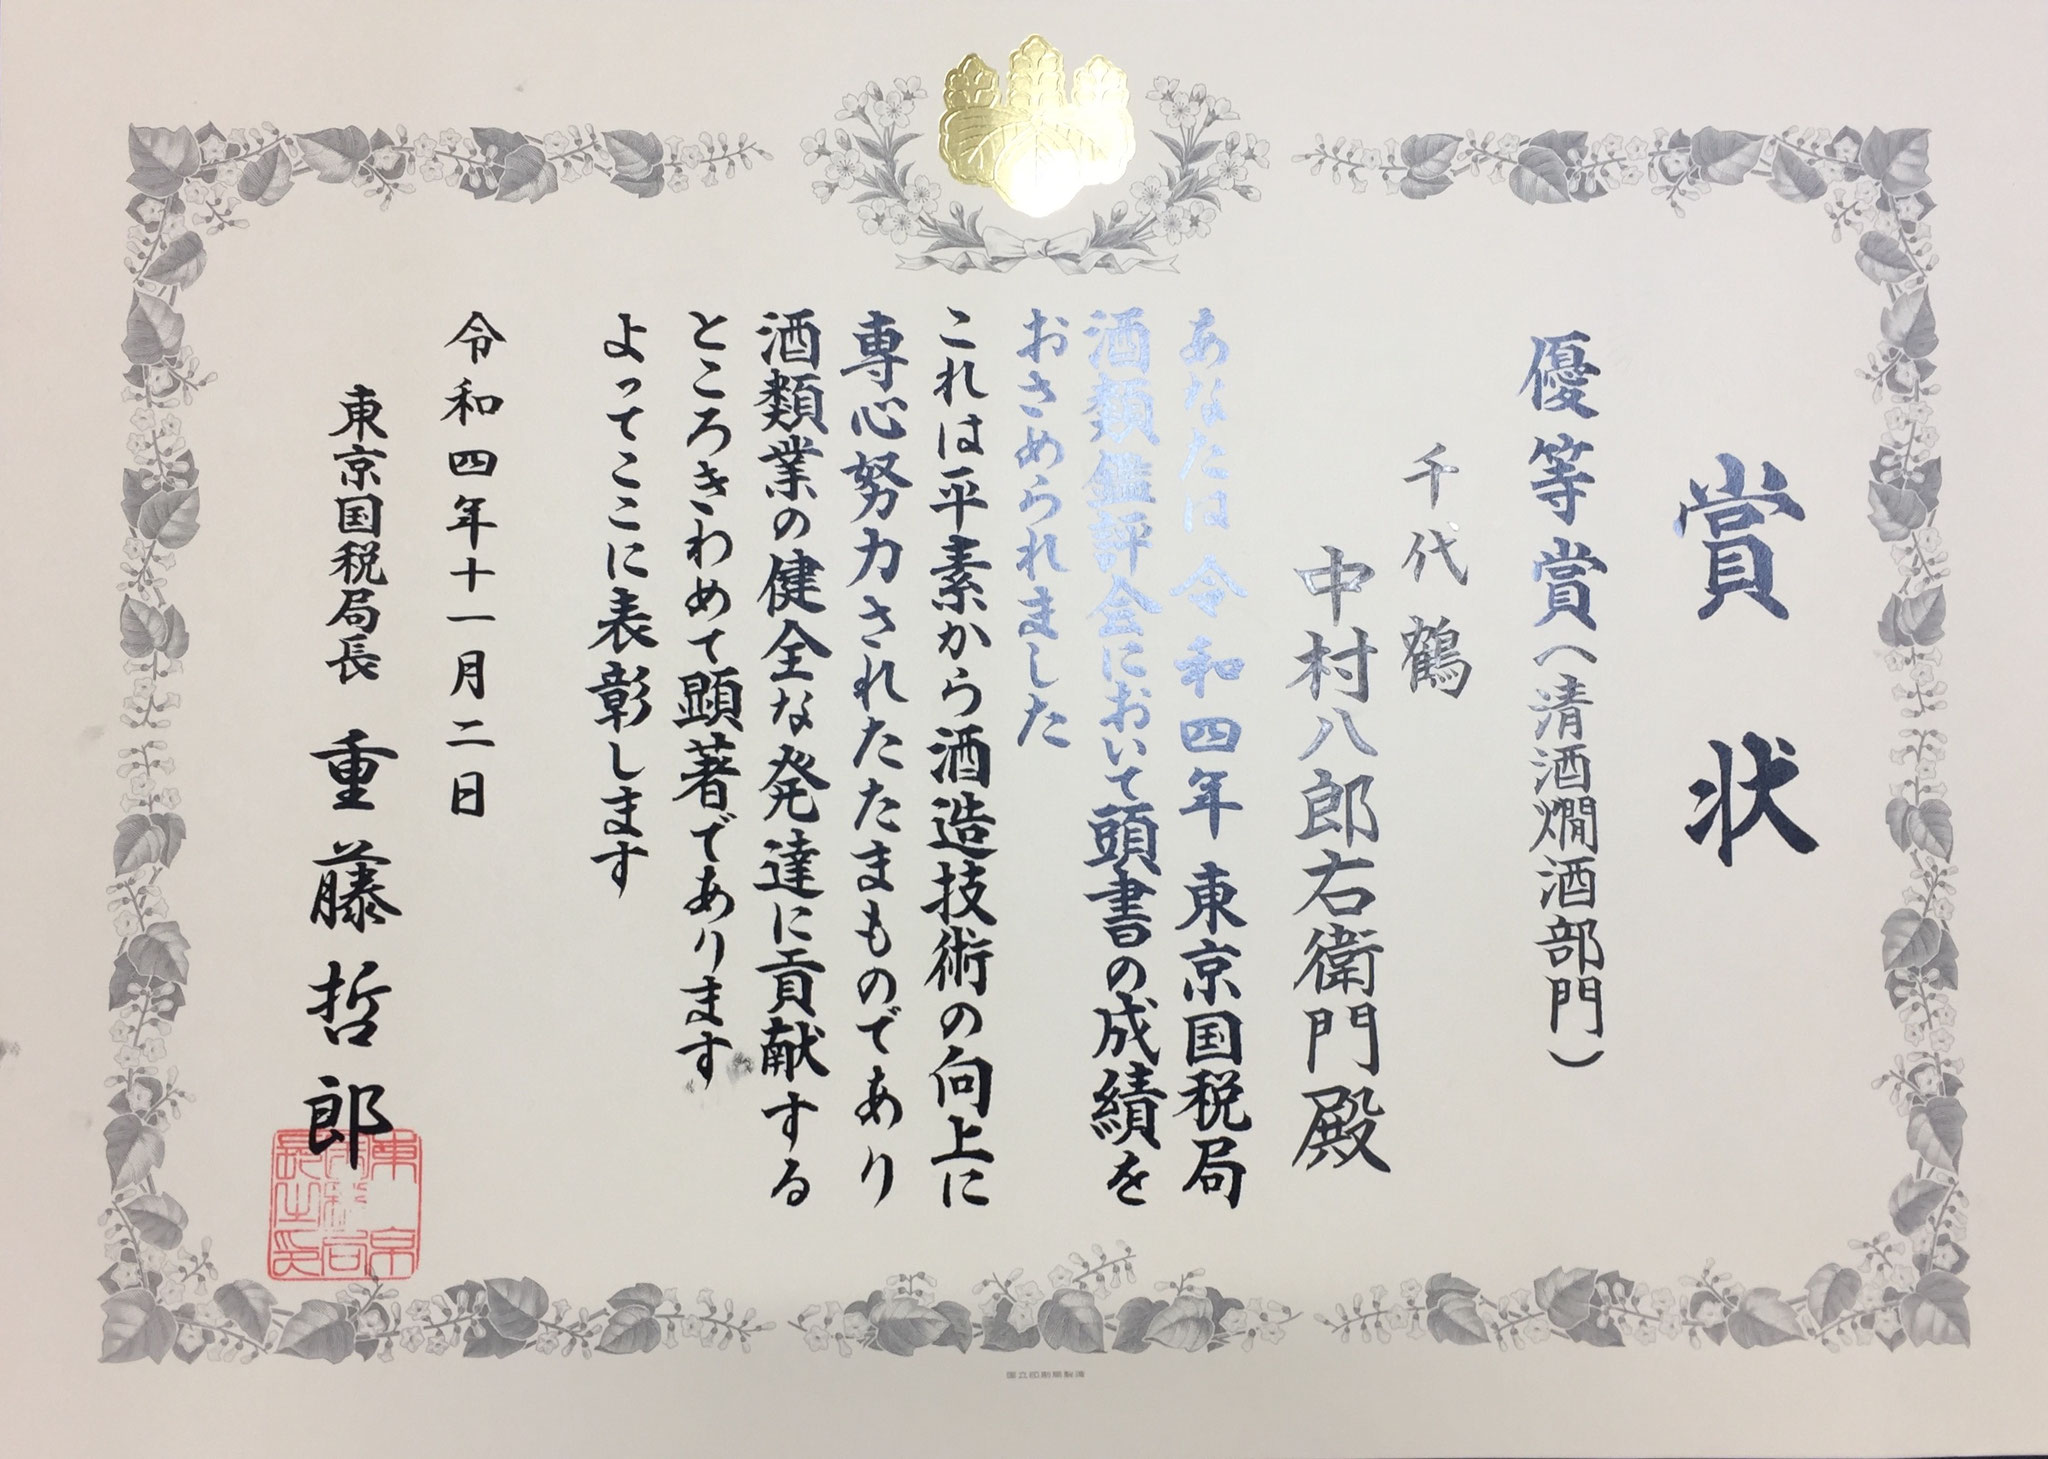 賞状
優等賞（清酒燗酒部門）
千代鶴
中村八郎右衛門殿
あなたは令和四年東京国税局
酒類鑑評会において頭書の成績を
おさめられました
これは平素から酒造技術の向上に
専心努力されたたまものであり
酒類業の健全な発達に貢献する
ところきわめて顕著であります
よってここに表彰します
令和四年十一月二日
東京国税局長 重藤哲郎
東京国税局長之印
国立印刷局製造